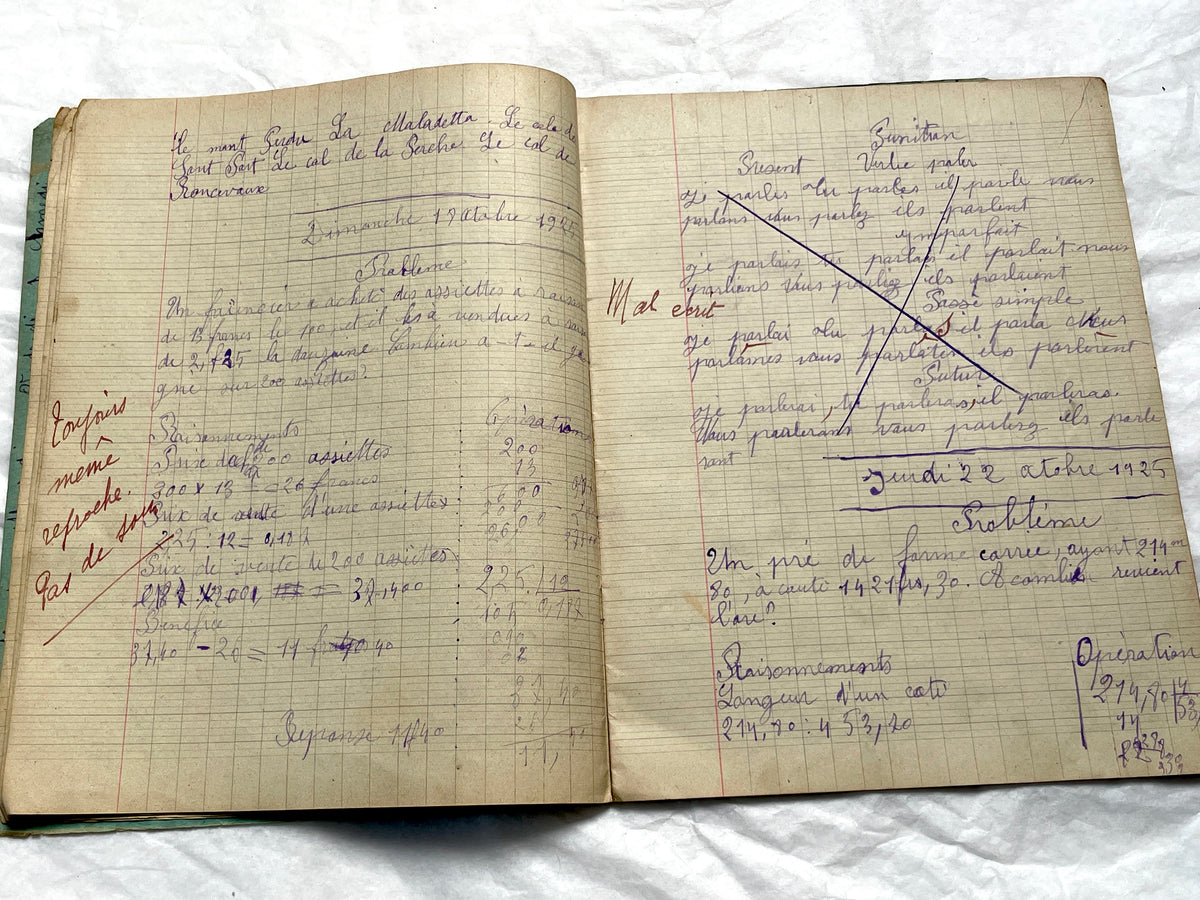 Le mont Perdu La Maladetta Le cols de
Sant Part Le col de la Perche Le col de
Roncevaux
Dimanche 18 Octobre 192
Problème
Un faïencier a acheté des assiettes à raison
de 13 francs le 100 et il les a vendues à rais
de 2,f25 la douzaine Combien a-t-il ga
gné sur 200 assiettes?
Toujours
même
reproche.
Pas de soin
Raisonnements
Opération
Prix de 200 assiettes
200 x 13 = 26 francs
Prix de vente d'une assiettes
2,25 : 12 = 0,187
Prix de vente de 200 assiettes
= 37,400
Bénéfice
37,40 - 26 = 11 f 40
200
13
600
200
2600
225 12
105 0,187
090
37,40
26
11,
Réponse 11f40
Punition
Présent Verbe parler
Je parles tu parles il parle nous
parlons vous parlez ils parlent
ymparfait
Je parlais tu parlais il parlait nous
parlions vous parliez ils parlaient
Passé simple
Mal écrit
Je parlai tu parlas il parla Nous
parlâmes vous parlâtes ils parlèrent
Futur
Je parlerai, tu parleras, il parleras.
Nous parlerons vous parlerez ils parle
ront
Jeudi 22 octobre 1925
Problème
Un pré de forme carrée, ayant 214m
80, à couté 1421frs,30. A combien revient
l'are?
Raisonnements
Longeur d'un coté
214,80 : 4 53,70
Opération
214,80 4
14 53